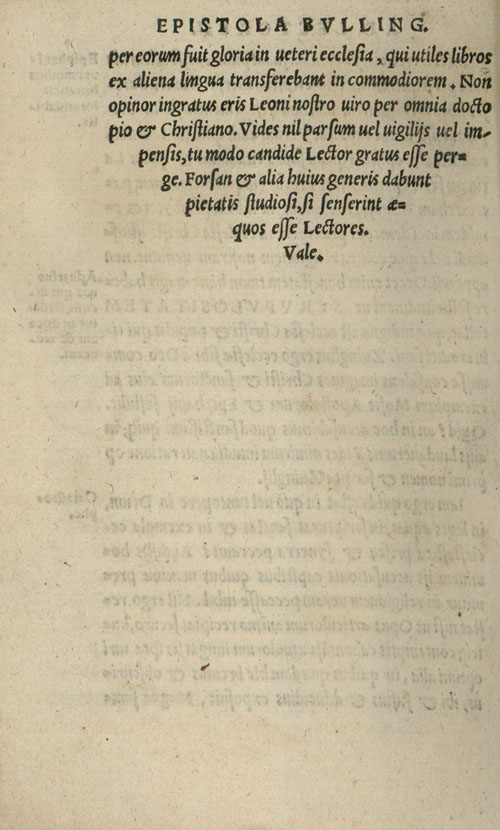 EPISTOLA BVLLING.
per eorum fuit gloria in ueteri ecclesia, qui utiles libros
ex aliena lingua transferebant in commodiorem. Non
opinor ingratus eris Leoni nostro uiro per omnia docto
pio & Christiano. Vides nil parsum uel uigilijs uel im-
pensis, tu modo candide Lector gratus esse per=
ge. Forsan & alia huius generis dabunt
pietatis studiosi, si senserint æ=
quos esse Lectores.
Vale.